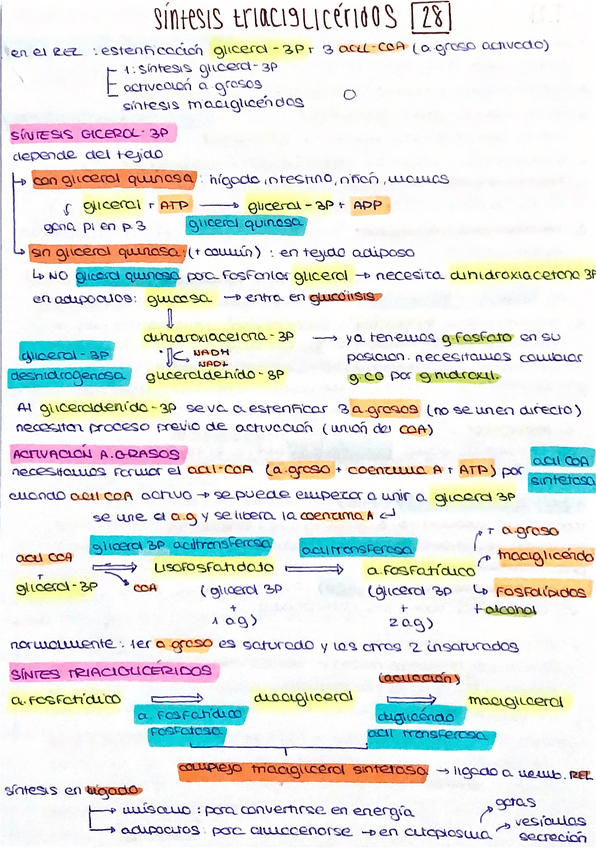 síntesis triaciglicéridos 28
en el REL : esterificación glicerol-3P + 3 acil-COA (a.graso activado)
1: síntesis glicerol-3P
activación a grasos
síntesis triacilglicéridos
SÍNTESIS GICEROL-3P
depende del tejido
con glicerol quinasa : hígado, intestino, riñón, mamas
glicerol + ATP → glicerol-3P + ADP
gana Pi en p.3 glicerol quinasa
sin glicerol quinasa (+ común) : en tejido adiposo
↳ NO glicerol quinasa para fosforilar glicerol → necesita dihidroxiacetona 3P
en adipocitos: glucosa → entra en glucólisis
dihidroxiacetona-3P → ya tenemos g.fosfato en su
glicerol-3P NADH posición. necesitamos cambiar
deshidrogenasa NAD+ gliceraldehído-3P g.CO por g.hidroxil.
Al gliceraldehído-3P se va a esterificar 3 a.grasos (no se unen directo)
necesitan proceso previo de activación (unión del COA)
ACTIVACIÓN A.GRASOS
necesitamos formar el acil-COA (a.graso + coenzima A + ATP) por acil COA sintetasa
cuando acil COA activo → se puede empezar a unir a glicerol 3P
se une el a.g y se libera la coenzima A ↵
glicerol 3P aciltransferasa aciltransferasa + a.graso
acil COA + glicerol-3P ⇒ Lisofosfatidato ⇒ a.fosfatídico triaciglicérido
COA (glicerol 3P + 1 ag) (glicerol 3P + 2 ag) fosfolípidos + alcohol
normalmente: 1er a graso es saturado y los otros 2 insaturados
SÍNTESIS TRIACIGLICÉRIDOS
(acilación)
a.fosfatídico ⇒ diacilglicerol ⇒ triacilglicerol
a. fosfatídico fosfatasa diglicérido acil transferasa
complejo triacilglicerol sintetasa → ligado a memb. REL
síntesis en hígado
→ mismo : para convertirse en energía
→ adipocitos: para almacenarse → en citoplasma gotas
vesículas secreción